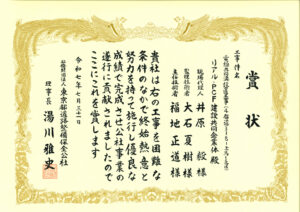 賞状
工事件名
リアル・PCF建設共同企業体殿
現場代理人 井原毅様
監理技術者 大石夏樹様
主任技術者 福地正道様
貴社は右の工事を困難な
条件のなかで終始熱意と
努力を持って施行し優良な
成績で完成させ公社事業の
遂行に貢献されましたので
ここにこれを賞します
令和七年七月三十一日
公益財団法人東京都道路整備保全公社
理事長 湯川雅史